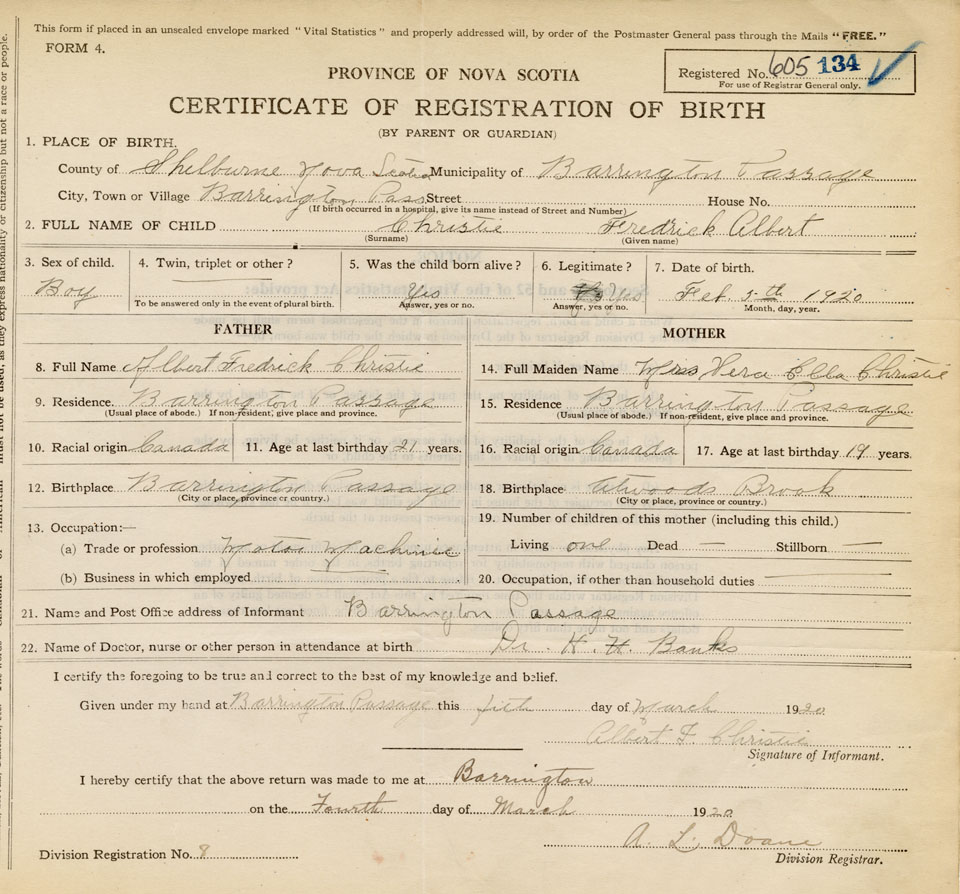 This form if placed in an unsealed envelope marked "Vital Statistics" and properly addressed will, by order of the Postmaster General pass through the Mails "FREE."
FORM 4.
Registered No. 605 134
For use of Registrar General only.
PROVINCE OF NOVA SCOTIA
CERTIFICATE OF REGISTRATION OF BIRTH
(BY PARENT OR GUARDIAN)
1. PLACE OF BIRTH.
County of Shelburne Nova Scotia Municipality of Barrington Passage
City, Town or Village Barrington Pass Street House No.
(If birth occurred in a hospital, give its name instead of Street and Number)
2. FULL NAME OF CHILD Christie Fredrick Albert
(Surname) (Given name)
3. Sex of child. 4. Twin, triplet or other? 5. Was the child born alive? 6. Legitimate? 7. Date of birth.
Boy Yes Yes Feb. 5th 1920
To be answered only in the event of plural birth. Answer, yes or no. Answer, yes or no. Month, day, year.
FATHER MOTHER
8. Full Name Albert Fredrick Christie 14. Full Maiden Name Miss Vera Ella Christie
9. Residence. Barrington Passage 15. Residence Barrington Passage
(Usual place of abode.) If non-resident, give place and province. (Usual place of abode.) If non-resident, give place and province.
10. Racial origin Canada 11. Age at last birthday 21 years. 16. Racial origin Canada 17. Age at last birthday 19 years.
12. Birthplace Barrington Passage 18. Birthplace Atwoods Brook
(City or place, province or country.) (City or place, province or country.)
13. Occupation:— 19. Number of children of this mother (including this child.)
(a) Trade or profession Motor Machinic Living one Dead — Stillborn —
(b) Business in which employed 20. Occupation, if other than household duties
21. Name and Post Office address of Informant Barrington Passage
22. Name of Doctor, nurse or other person in attendance at birth Dr. H. H. Banks
I certify the foregoing to be true and correct to the best of my knowledge and belief.
Given under my hand at Barrington Passage this fith day of March 1920
Albert F. Christie
Signature of Informant.
I hereby certify that the above return was made to me at Barrington
on the Fourth day of March 1920
A. L. Doane
Division Registration No. 8 Division Registrar.